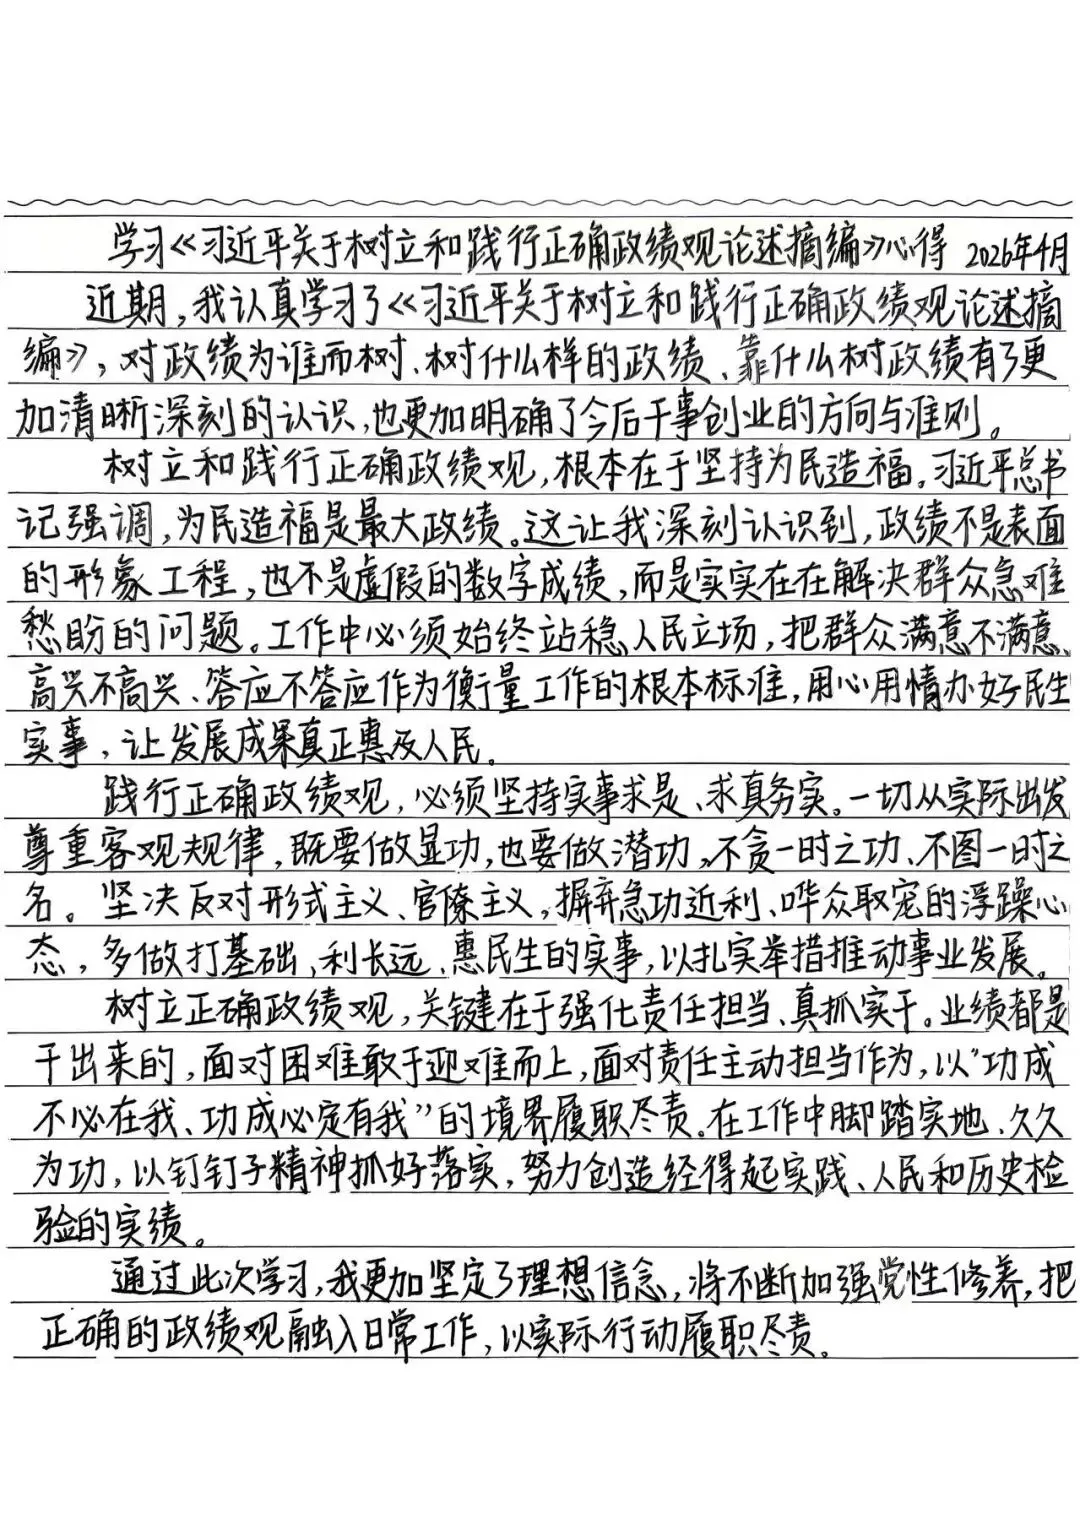 学习《习近平关于树立和践行正确政绩观论述摘编》心得 2026年4月
近期，我认真学习了《习近平关于树立和践行正确政绩观论述摘
编》，对政绩为谁而树、树什么样的政绩、靠什么树政绩有了更
加清晰深刻的认识，也更加明确了今后干事创业的方向与准则。
树立和践行正确政绩观，根本在于坚持为民造福。习近平总书
记强调，为民造福是最大政绩。这让我深刻认识到，政绩不是表面
的形象工程，也不是虚假的数字成绩，而是实实在在解决群众急难
愁盼的问题。工作中必须始终站稳人民立场，把群众满意不满意、
高兴不高兴、答应不答应作为衡量工作的根本标准，用心用情办好民生
实事，让发展成果真正惠及人民。
践行正确政绩观，必须坚持实事求是、求真务实。一切从实际出发
尊重客观规律，既要做显功，也要做潜功，不贪一时之功、不图一时之
名。坚决反对形式主义、官僚主义，摒弃急功近利、哗众取宠的浮躁心
态，多做打基础、利长远、惠民生的实事，以扎实举措推动事业发展。
树立正确政绩观，关键在于强化责任担当、真抓实干。业绩都是
干出来的，面对困难敢于迎难而上，面对责任主动担当作为，以“功成
不必在我、功成必定有我”的境界履职尽责。在工作中脚踏实地、久久
为功，以钉钉子精神抓好落实，努力创造经得起实践、人民和历史检
验的实绩。
通过此次学习，我更加坚定了理想信念，将不断加强党性修养，把
正确的政绩观融入日常工作，以实际行动履职尽责。